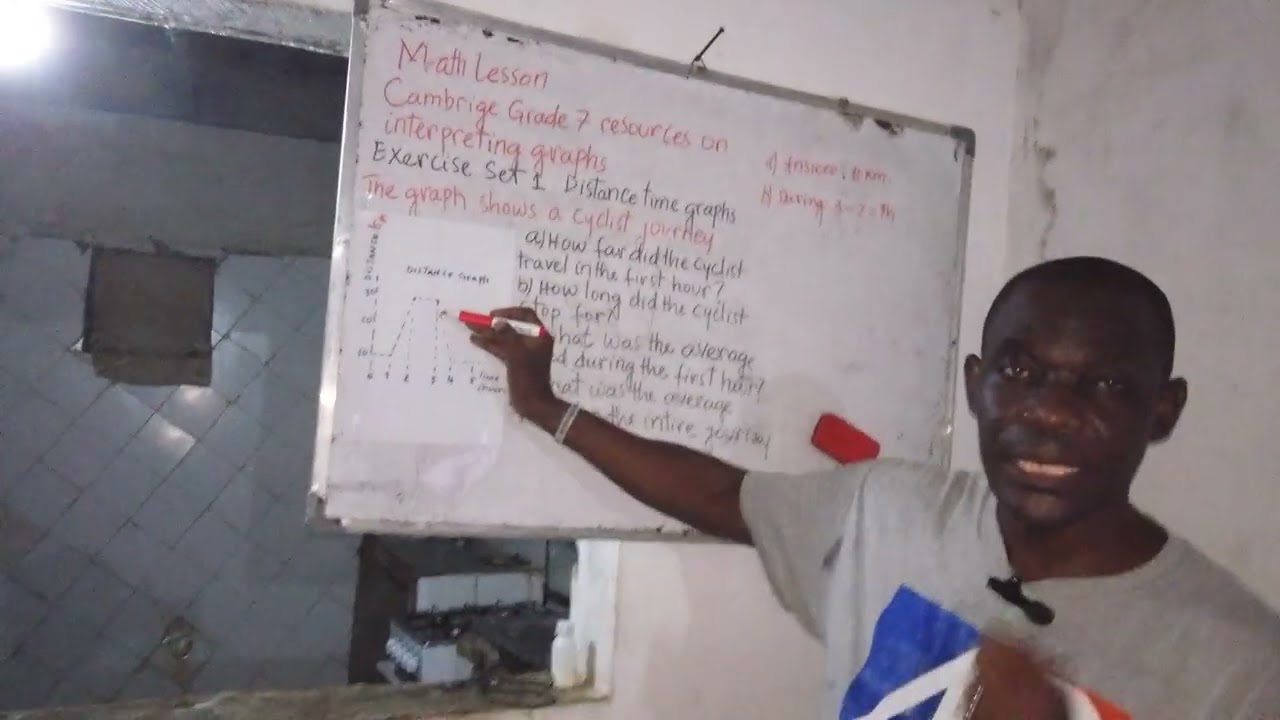 Math Lesson
Cambrige Grade 7 resources on
interpreting graphs
Exercise Set 1 Distance time graphs
The graph shows a cyclist journey
a) How far did the cyclist
travel in the first hour?
b) How long did the cyclist
stop for
hat was the average
d during the first hour?
hat was the average
the intire journey
Distance Graph
Distance
Time
Answer: 10 km
b) During 3-2=1h